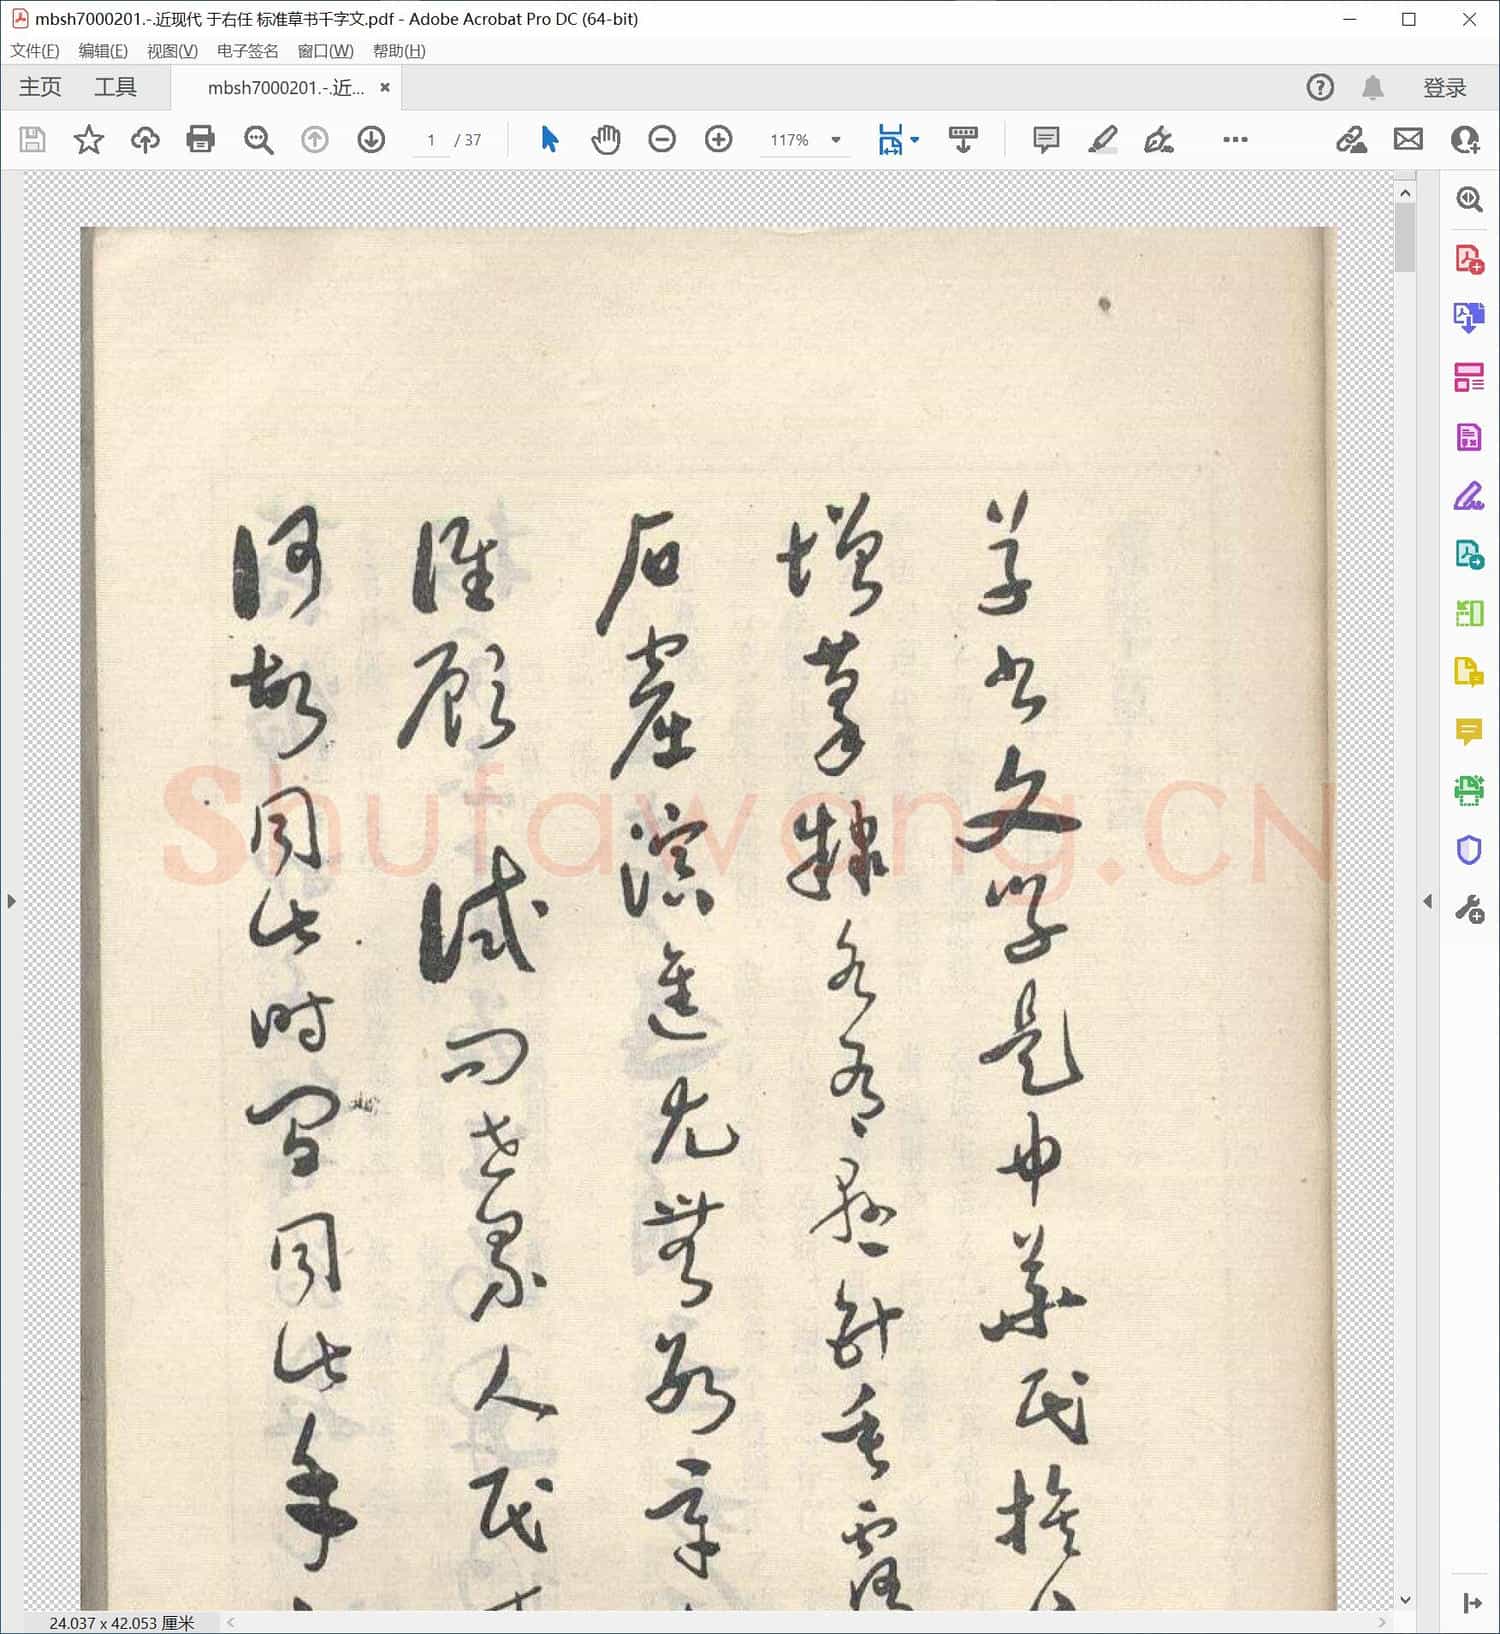 mbsh7000201.-.近现代 于右任 标准草书千字文.pdf - Adobe Acrobat Pro DC (64-bit)
文件(F) 编辑(E) 视图(V) 电子签名 窗口(W) 帮助(H)
主页 工具 mbsh7000201.-.近... × 登录
1 / 37 117%
草書文學是中華民族
增篆隸各有懸針垂露
石窟演進尤無數章
誰顧 試問世界人民
何故同此時間同此手
Shufawang.CN
24.037 x 42.053 厘米